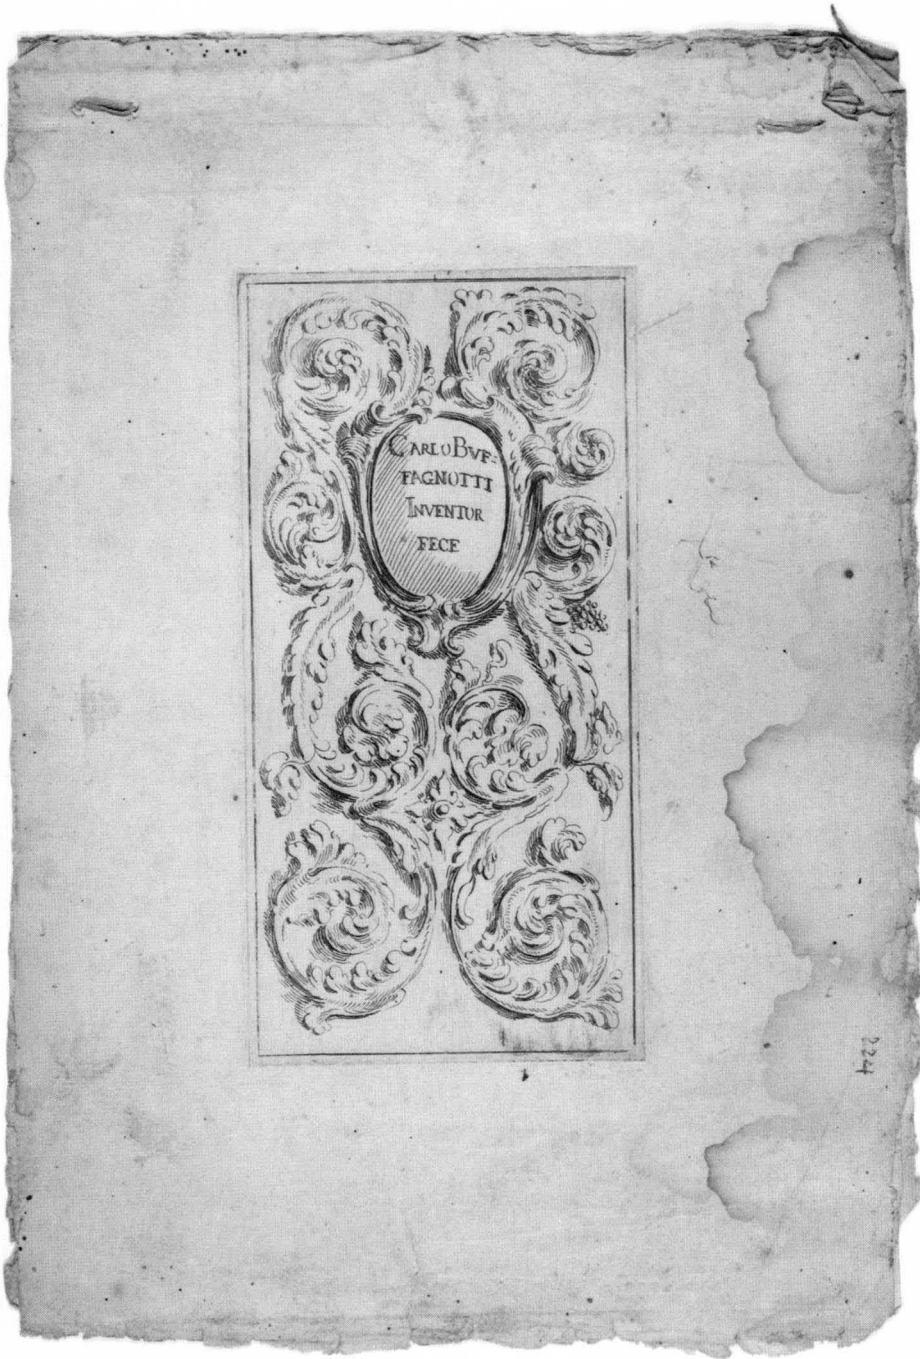 CARLO BVF-
FAGNOTTI
INVENTUR
FECE
224